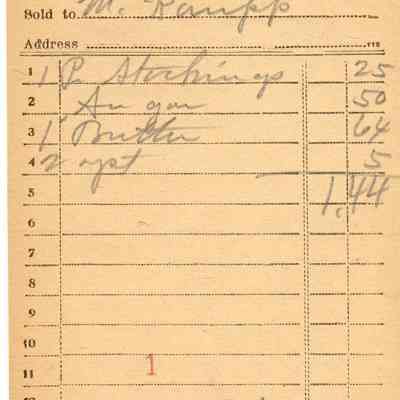 Sold to M. Raupp
Address
1 1 P Stockings 25
2 Sugar 50
3 1 Butter 64
4 2 yst 5
5 1,44
6
7
8
9
10
11 1